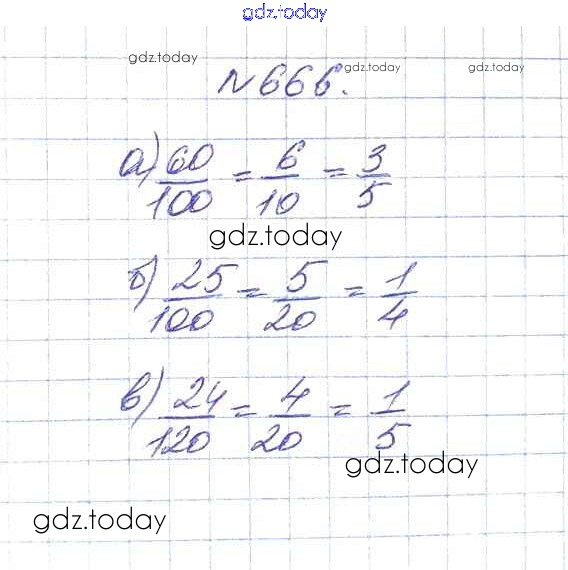 gdz.today
gdz.today gdz.today gdz.today
№ 666.
а) 60/100 = 6/10 = 3/5
gdz.today
б) 25/100 = 5/20 = 1/4
в) 24/120 = 4/20 = 1/5
gdz.today
gdz.today